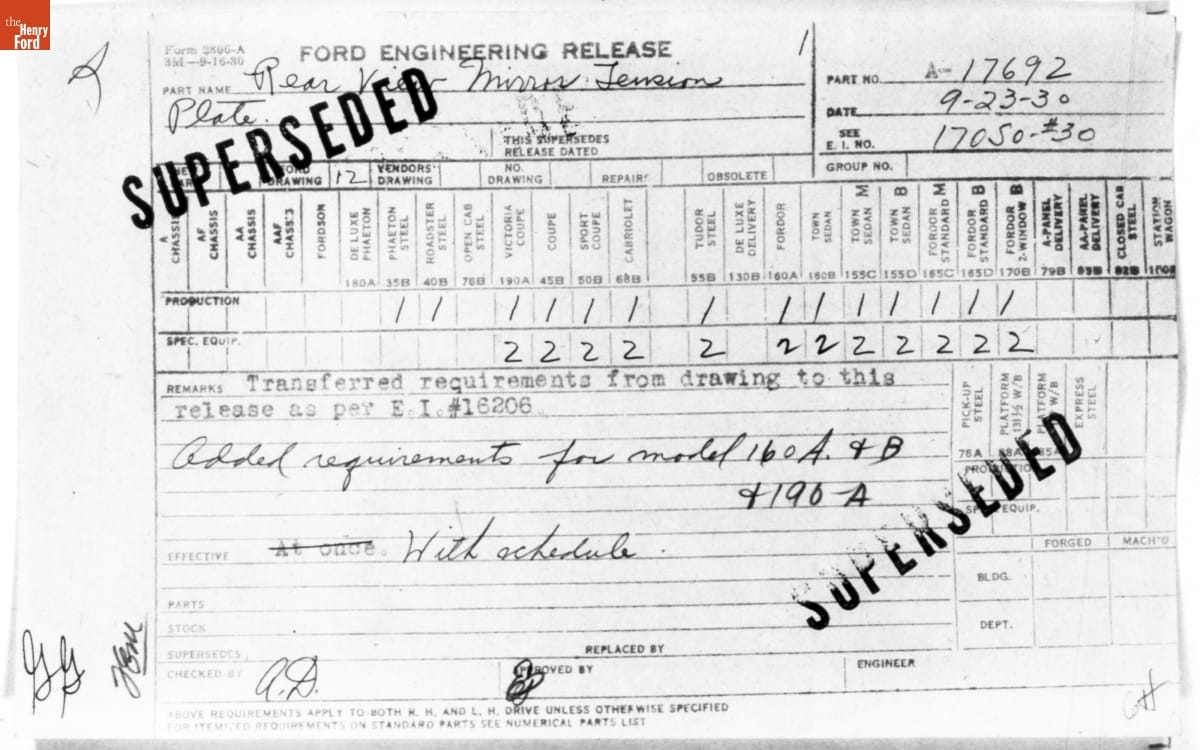 the
Henry
Ford
Form 2806-A
3M—9-16-30
FORD ENGINEERING RELEASE
1
PART NAME Rear View Mirror Tension
Plate.
PART NO. A-17692
DATE 9-23-30
SEE
E. I. NO. 17050-#30
GROUP NO.
SUPERSEDED
THIS SUPERSEDES
RELEASE DATED
DRAWING 12 VENDORS' DRAWING NO. DRAWING REPAIRS OBSOLETE
A CHASSIS
AF CHASSIS
AA CHASSIS
AAF CHASSIS
FORDSON
DE LUXE PHAETON 180A
PHAETON STEEL 35B
ROADSTER STEEL 40B
OPEN CAB STEEL 76B
VICTORIA COUPE 190A
COUPE 45B
SPORT COUPE 50B
CABRIOLET 68B
TUDOR STEEL 55B
DE LUXE DELIVERY 130B
FORDOR 160A
TOWN SEDAN 160B
TOWN SEDAN M 155C
TOWN SEDAN B 155D
FORDOR STANDARD M 165C
FORDOR STANDARD B 165D
FORDOR 2-WINDOW B 170B
A-PANEL DELIVERY 79B
AA-PANEL DELIVERY 85B
CLOSED CAB STEEL 82B
STATION WAGON
PRODUCTION 1 1 1 1 1 1 1 1 1 1 1 1 1 1
SPEC. EQUIP. 2 2 2 2 2 2 2 2 2 2 2 2
REMARKS Transferred requirements from drawing to this
release as per E.I.#16206.
Added requirements for model 160A. & B
& 190-A
PICK-UP STEEL 78A
PLATFORM 131½ W/B 88A
PLATFORM W/B
EXPRESS STEEL
PRODUCTION
SPEC. EQUIP.
SUPERSEDED
EFFECTIVE At once. With schedule.
FORGED MACH'D
BLDG.
PARTS
STOCK
DEPT.
SUPERSEDES
REPLACED BY
CHECKED BY A.D.
APPROVED BY
ENGINEER
ABOVE REQUIREMENTS APPLY TO BOTH R. H. AND L. H. DRIVE UNLESS OTHERWISE SPECIFIED
FOR ITEMIZED REQUIREMENTS ON STANDARD PARTS SEE NUMERICAL PARTS LIST